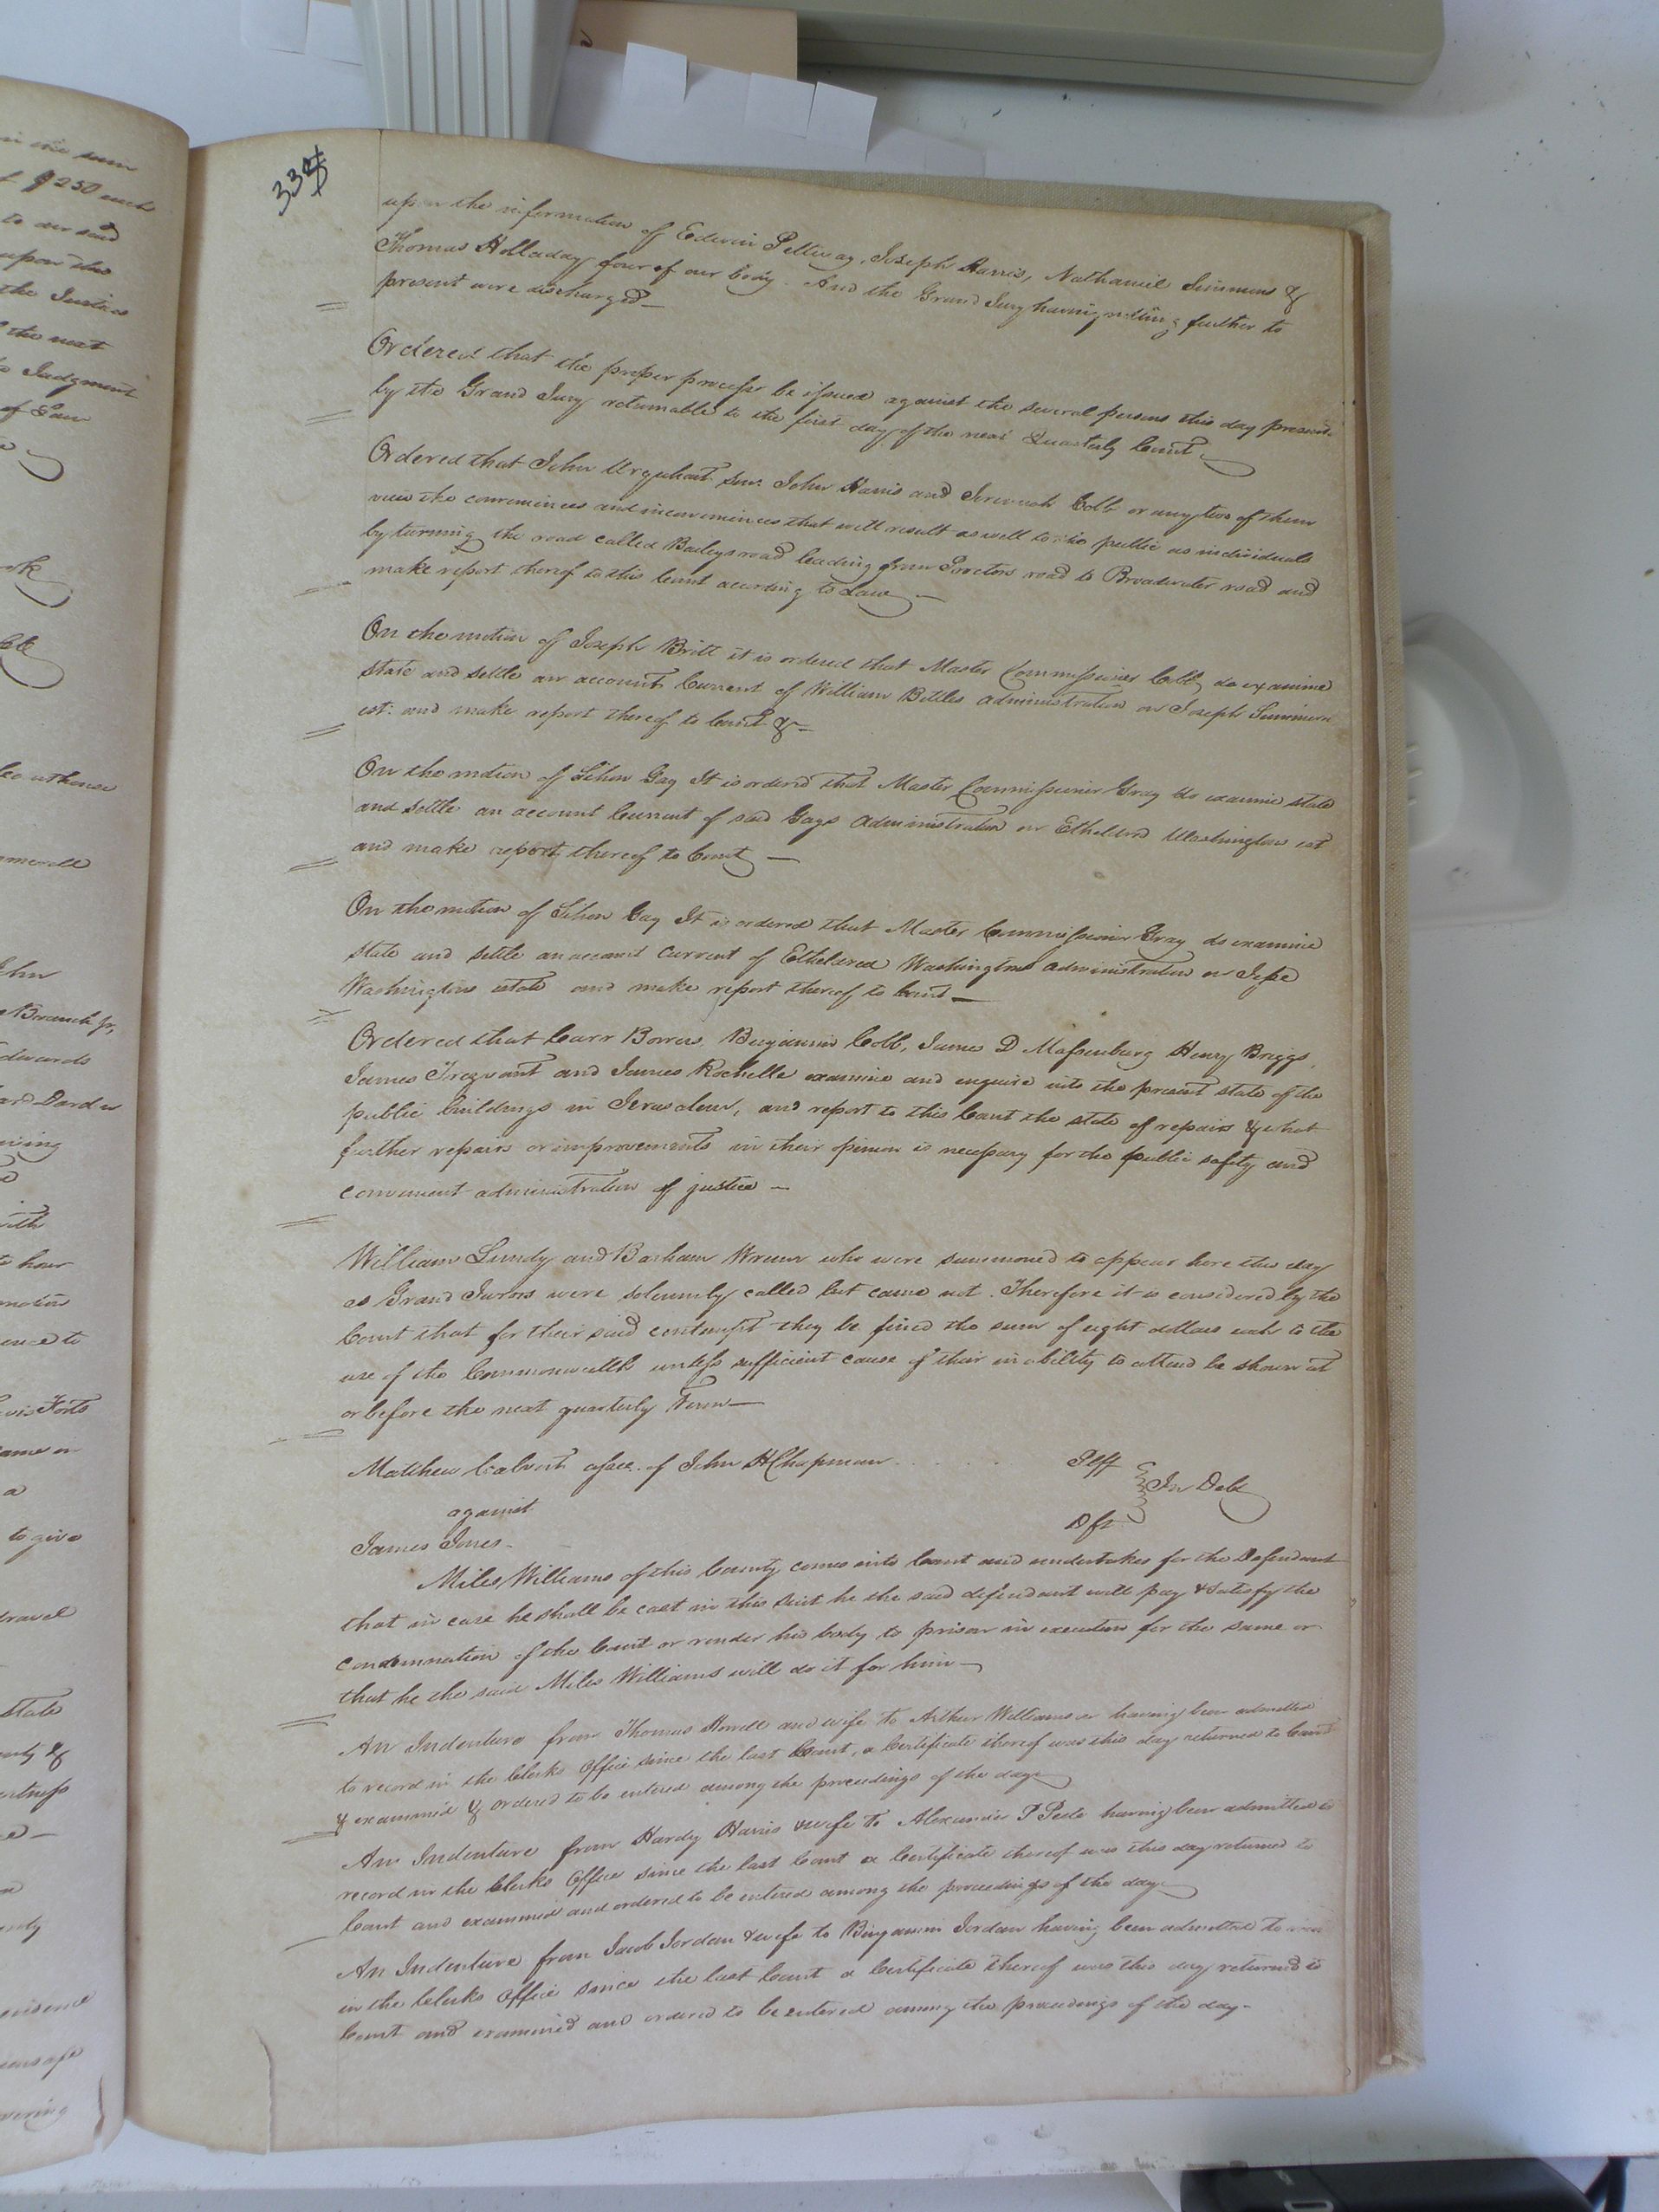 in the sum
of $250 each
to our said
upon the
the Justices
the next
Judgment
of Law
Courthouse
John
Branch jr,
Edwards
Dard
with
hour
motion
to
Forts
a
to give
travel
State
&
witness
evidence
334
upon the information of Edwin Pettway, Joseph Harris, Nathaniel Simmons &
Thomas Holladay four of our body. And the Grand Jury having nothing further to
present were discharged—
Ordered that the proper process be issued against the several persons this day present
by the Grand Jury returnable to the first day of the next Quarterly Court.
Ordered that John Urquhart Senr. John Harris and Jeremiah Cobb or any two of them
view the conveniences and inconveniences that will result as well to the public as individuals
by turning the road called Baileys road leading from Proctors road to Broadwater road and
make report thereof to this Court according to Law—
On the motion of Joseph Britt it is ordered that Master Commissioner Cobb do examine
state and settle an account Current of William Bittles administration on Joseph
est: and make report thereof to Court &—
On the motion of Sihon Gay It is ordered that Master Commissioner Gray do examine state
and settle an account Current of said Gays administration on Etheldred Washington est
and make report thereof to Court—
On the motion of Sihon Gay It is ordered that Master Commissioner Gray do examine
state and settle an account Current of Etheldred Washingtons administration on Jesse
Washingtons estate and make report thereof to Court—
Ordered that Carr Bowers, Benjamin Cobb, James D Massenburg Henry Briggs,
James Trezvant and James Rochelle examine and enquire into the present state of the
public buildings in Jerusalem, and report to this Court the state of repairs & what
further repairs or improvements in their opinion is necessary for the public safety and
convenient administration of justice—
William Lundy and Barham Wrenn who were summoned to appear here this day
as Grand Jurors were solemnly called but came not. Therefore it is considered by the
Court that for their said contempt they be fined the sum of eight dollars each to the
use of the Commonwealth unless sufficient cause of their inability to attend be shown at
or before the next quarterly Term—
Matthew Calvert assee. of John H Chapman . . . . . . Plff
In Debt
against
Dft
James Jones—
Miles Williams of this County comes into Court and undertakes for the Defendant
that in case he shall be cast in this suit he the said defendant will pay & satisfy the
condemnation of the Court or render his body to prison in execution for the same or
that he the said Miles Williams will do it for him—
An Indenture from Thomas Howell and wife to Arthur Williamson having been admitted
to record in the Clerks Office since the last Court, a Certificate thereof was this day returned to Court
& examined & ordered to be entered among the proceedings of the day
An Indenture from Hardy Harris & wife to Alexander P Peete having been admitted to
record in the Clerks Office since the last Court a Certificate thereof was this day returned to
Court and examined and ordered to be entered among the proceedings of the day
An Indenture from Jacob Jordan & wife to Benjamin Jordan having been admitted to
in the Clerks Office since the last Court a Certificate thereof was this day returned to
Court and examined and ordered to be entered among the proceedings of the day—